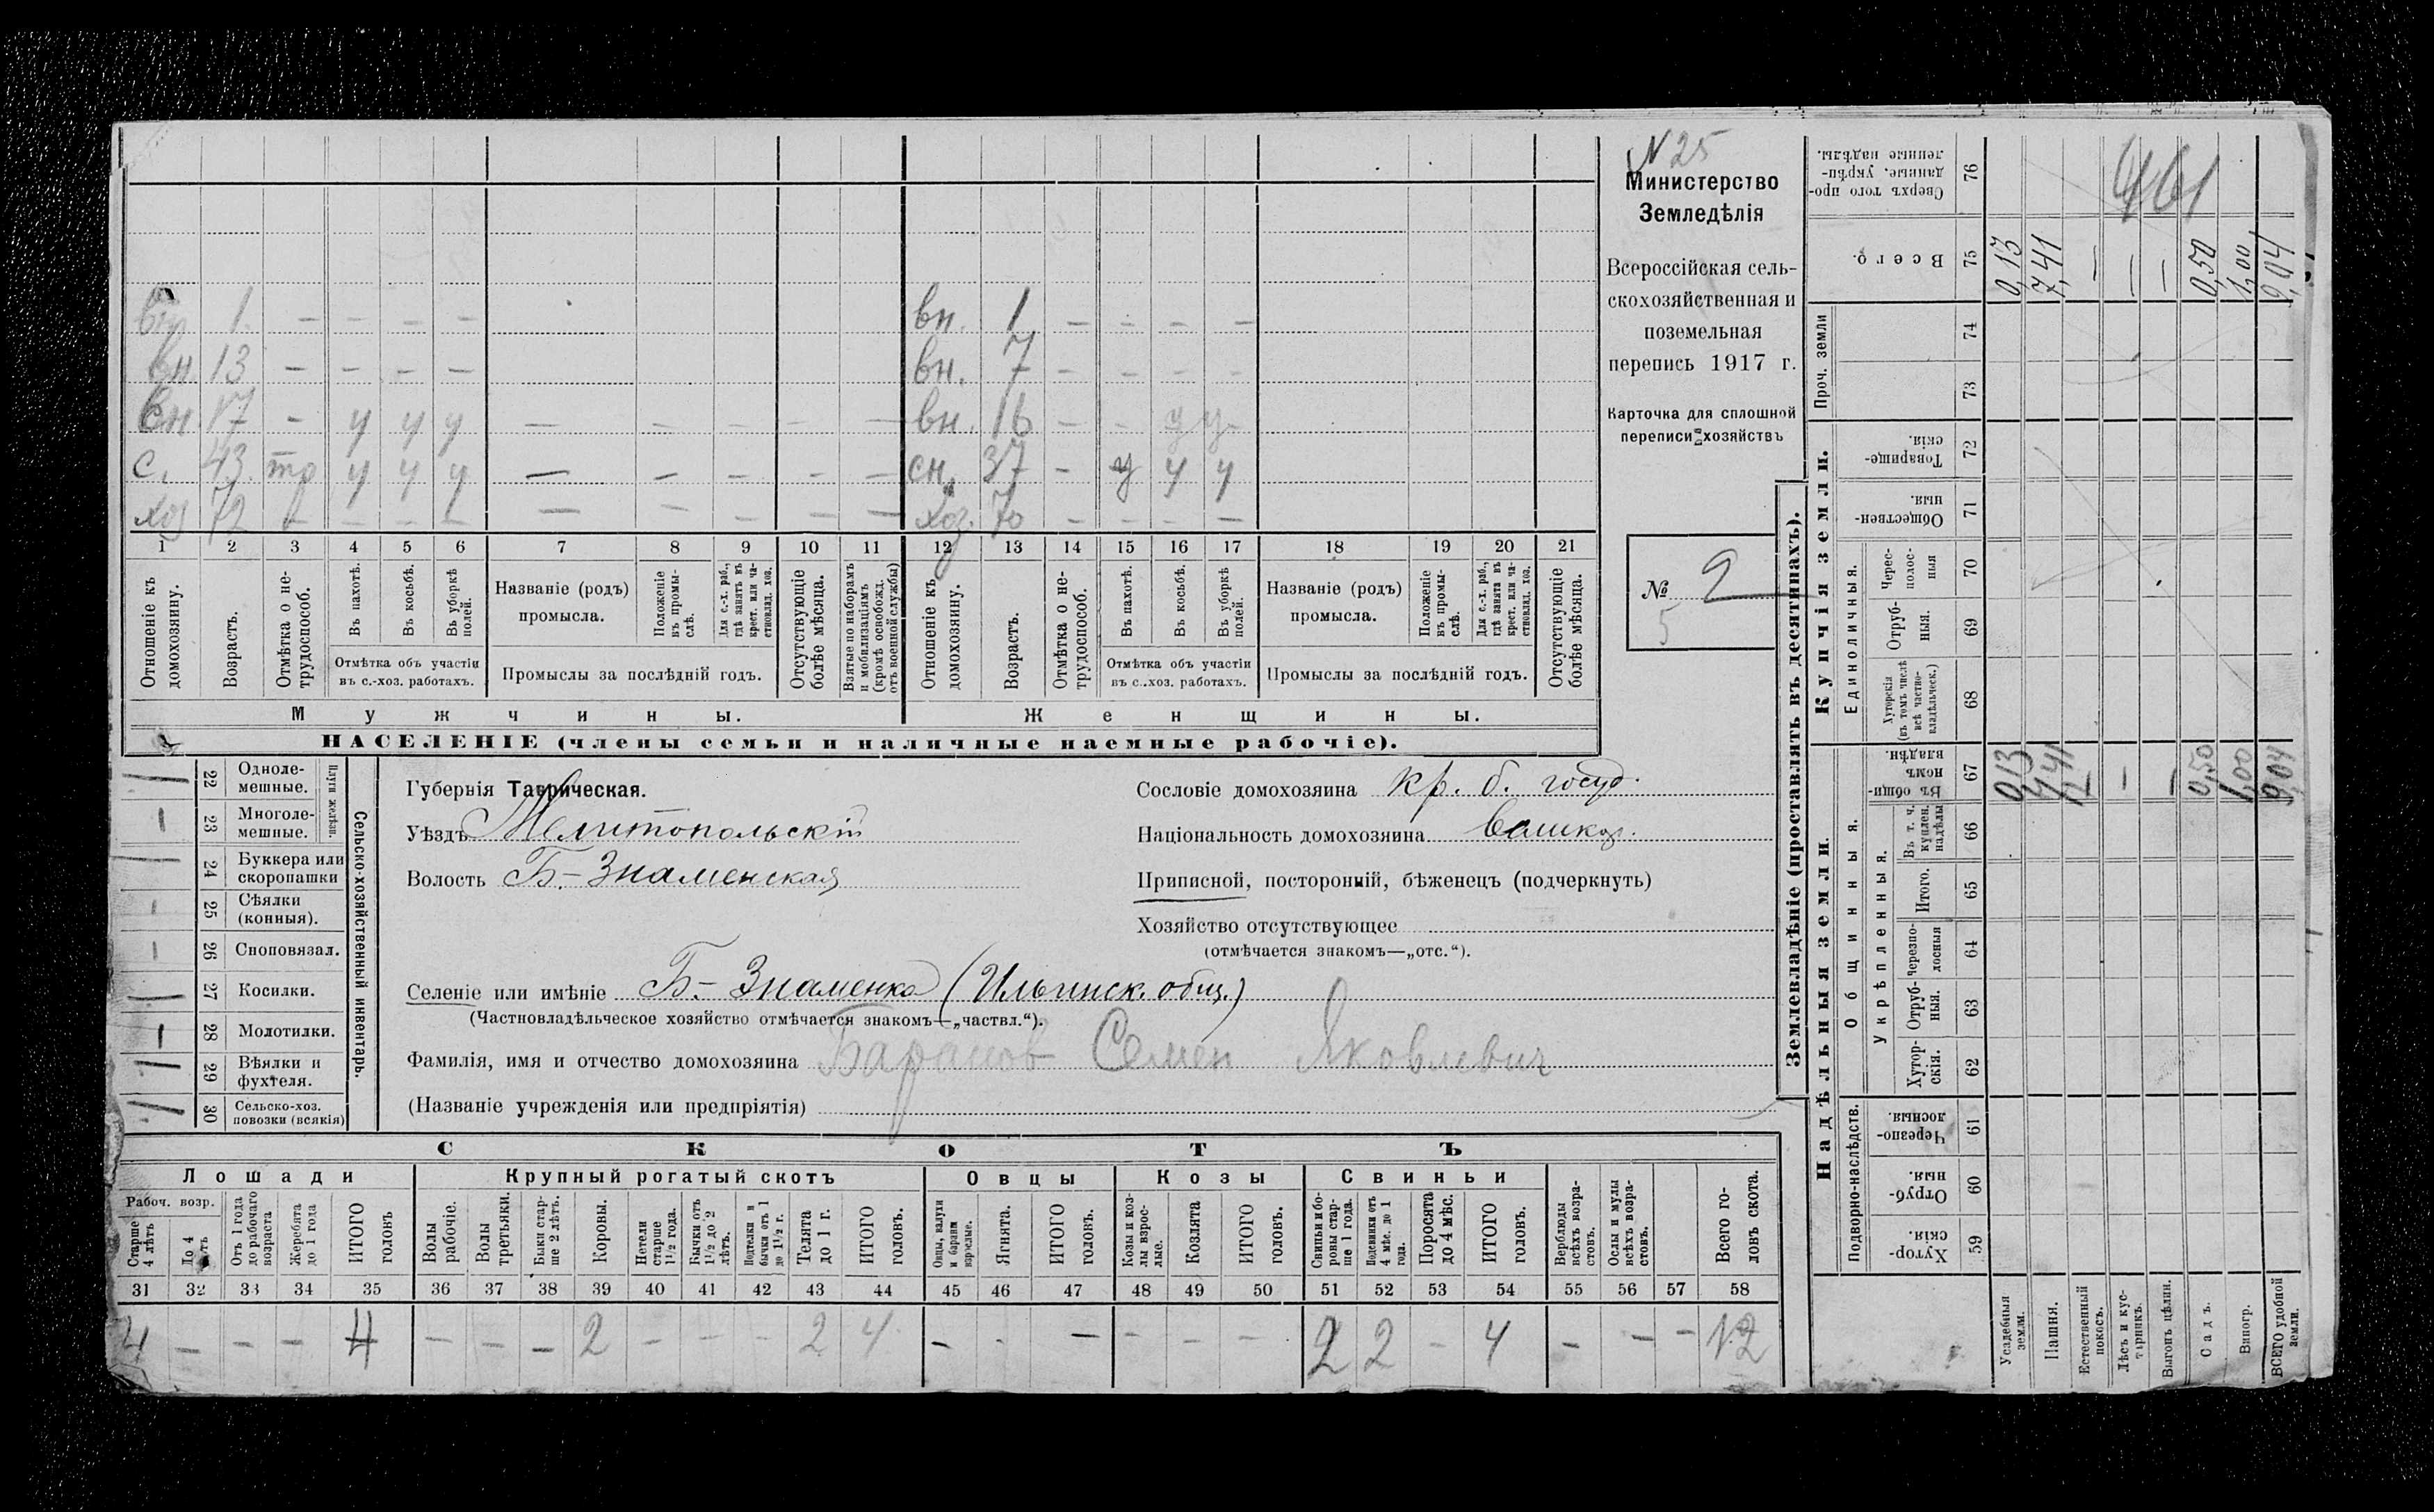 N 25
Министерство
Земледѣлія
Всероссійская сель-
скохозяйственная и
поземельная
перепись 1917 г.
Карточка для сплошной
переписи хозяйствъ
№ 2
5
1 – – – –
вн 13 – – – –
вн 17 – у у у – – – – –
с. 43 тр у у у – – – – –
хоз 72 – – – – – – – – –
вн. 1 – – – –
вн. 7 – – – –
вн. 16 – – у у
сн. 37 – у у у
хоз. 70 – – – –
1 2 3 4 5 6 7 8 9 10 11 12 13 14 15 16 17 18 19 20 21
Отношеніе къ домохозяину.
Возрастъ.
Отмѣтка о не-трудоспособ.
Въ пахотѣ.
Въ косьбѣ.
Въ уборкѣ полей.
Отмѣтка объ участіи въ с.-хоз. работахъ.
Названіе (родъ) промысла.
Положеніе въ промы-слѣ.
Для с.-х. раб., гдѣ занятъ въ крест. или ча-стновлад. хоз.
Промыслы за послѣдній годъ.
Отсутствующіе болѣе мѣсяца.
Взятые по наборамъ и мобилизаціямъ (кромѣ освобожд. отъ военной службы)
Отношеніе къ домохозяину.
Возрастъ.
Отмѣтка о не-трудоспособ.
Въ пахотѣ.
Въ косьбѣ.
Въ уборкѣ полей.
Отмѣтка объ участіи въ с..хоз. работахъ.
Названіе (родъ) промысла.
Положеніе въ промы-слѣ.
Для с.-х. раб., гдѣ занята въ крест. или ча-стновлад. хоз.
Промыслы за послѣдній годъ.
Отсутствующіе болѣе мѣсяца.
Мужчины.
Женщины.
НАСЕЛЕНІЕ (члены семьи и наличные наемные рабочіе).
22 Одноле-мешные.
23 Многоле-мешные.
Плуги желѣзн.
24 Буккера или скоропашки
25 Сѣялки (конныя).
26 Сноповязал.
27 Косилки.
28 Молотилки.
29 Вѣялки и фухтеля.
30 Сельско-хоз. повозки (всякія)
Сельско-хозяйственный инвентарь.
Губернія Таврическая.
Уѣздъ Мелитопольскій
Волость Б.-Знаменская
Сословіе домохозяина кр. б. госуд.
Національность домохозяина
Приписной, посторонній, бѣженецъ (подчеркнуть)
Хозяйство отсутствующее
(отмѣчается знакомъ—„отс.“).
Селеніе или имѣніе Б.-Знаменка (Ильинск. общ.)
(Частновладѣльческое хозяйство отмѣчается знакомъ—„частвл.“).
Фамилія, имя и отчество домохозяина Баранов Семен Яковлевич
(Названіе учрежденія или предпріятія)
СКОТЪ
Лошади
Крупный рогатый скотъ
Овцы
Козы
Свиньи
Рабоч. возр.
Старше 4 лѣтъ
До 4 лѣтъ
Отъ 1 года до рабочаго возраста
Жеребята до 1 года
ИТОГО головъ
Волы рабочіе.
Волы третьяки.
Быки стар-ше 2 лѣтъ.
Коровы.
Нетели старше 1½ года.
Бычки отъ 1½ до 2 лѣтъ.
Подтелки и бычки отъ 1 до 1½ г.
Телята до 1 г.
ИТОГО головъ.
Овцы, валухи и бараны взрослые.
Ягнята.
ИТОГО головъ.
Козы и коз-лы взрос-лые.
Козлята
ИТОГО головъ.
Свиньи и бо-ровы стар-ше 1 года.
Подсвинки отъ 4 мѣс. до 1 года.
Поросята до 4 мѣс.
ИТОГО головъ.
Верблюды всѣхъ возра-стовъ.
Ослы и мулы всѣхъ возра-стовъ.
Всего го-ловъ скота.
31 32 33 34 35 36 37 38 39 40 41 42 43 44 45 46 47 48 49 50 51 52 53 54 55 56 57 58
4 – – – 4 – – – 2 – – – 2 4 – - – – – – 2 2 – 4 – – – 12
Землевладѣніе (проставлять въ десятинахъ).
Надѣльныя земли.
Купчія земли.
Проч. земли
Подворно-наслѣдств.
Общинныя.
Укрѣпленныя.
Единоличныя.
Хутор-скія. 59
Отруб-ныя. 60
Черезпо-лосныя. 61
Хутор-скія. 62
Отруб-ныя. 63
Черезпо-лосныя 64
Итого. 65
Въ т. ч. куплен. надѣлы 66
Въ общи-номъ владѣн. 67
Хуторскія (въ томъ числѣ всѣ частно-владѣльческ.) 68
Отруб-ныя. 69
Черес-полос-ныя 70
Обществен-ныя. 71
Товарище-скія. 72
73
74
Всего. 75
Сверхъ того про-данные, укрѣп-ленные надѣлы. 76
461
Усадебныя земли. 0,13 0,13
Пашня. 7,41 7,41
Естественный покосъ. – –
Лѣсъ и кус-тарникъ. – –
Выгонъ цѣлин. – –
Садъ. 0,50 0,50
Виногр. 1,00 1,00
ВСЕГО удобной земли. 9,04 9,04